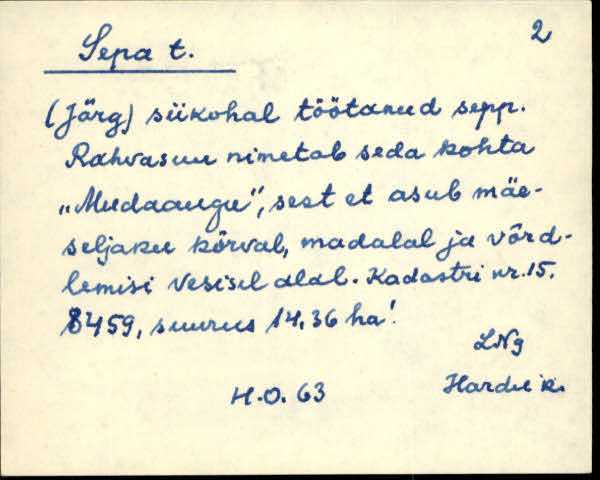 Sepa t.
2
(Järg) siikohal töötanud sepp.
Rahvasuu nimetab seda kohta
„Mudaaugu", sest et asub mäe-
seljaku kõrval, madalal ja võrd-
lemisi vesisel alal. Kadastri nr. 15.
8459, suurus 14,36 ha!
LNg
Hardu k.
H.O. 63